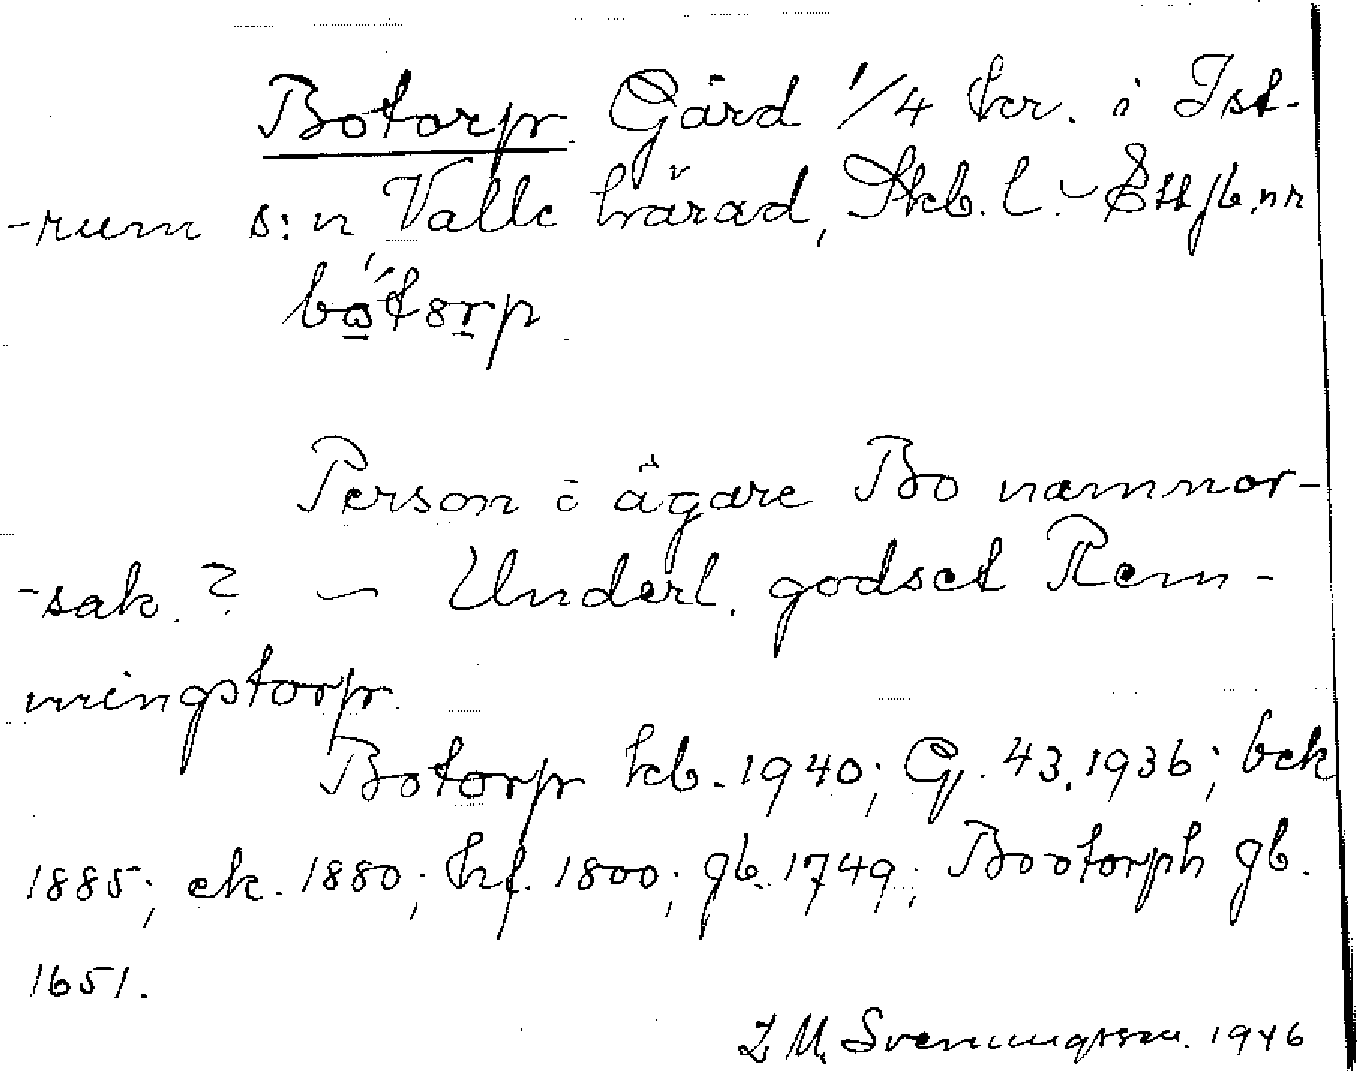 Botorp Gård 1/4 hr. i Ist-
-rum s:n Valle härad, Skb. l. - Ett jb.nr
Person o ägare Bo namnor-
-sak. ? - Underl. godset Rem-
mingstorp.
Botorp kb. 1940; G. 43. 1936; bek
1885; ek. 1880; hf. 1800; gb. 1749; Bootorph gb.
1651.
Svenungsson. 1946